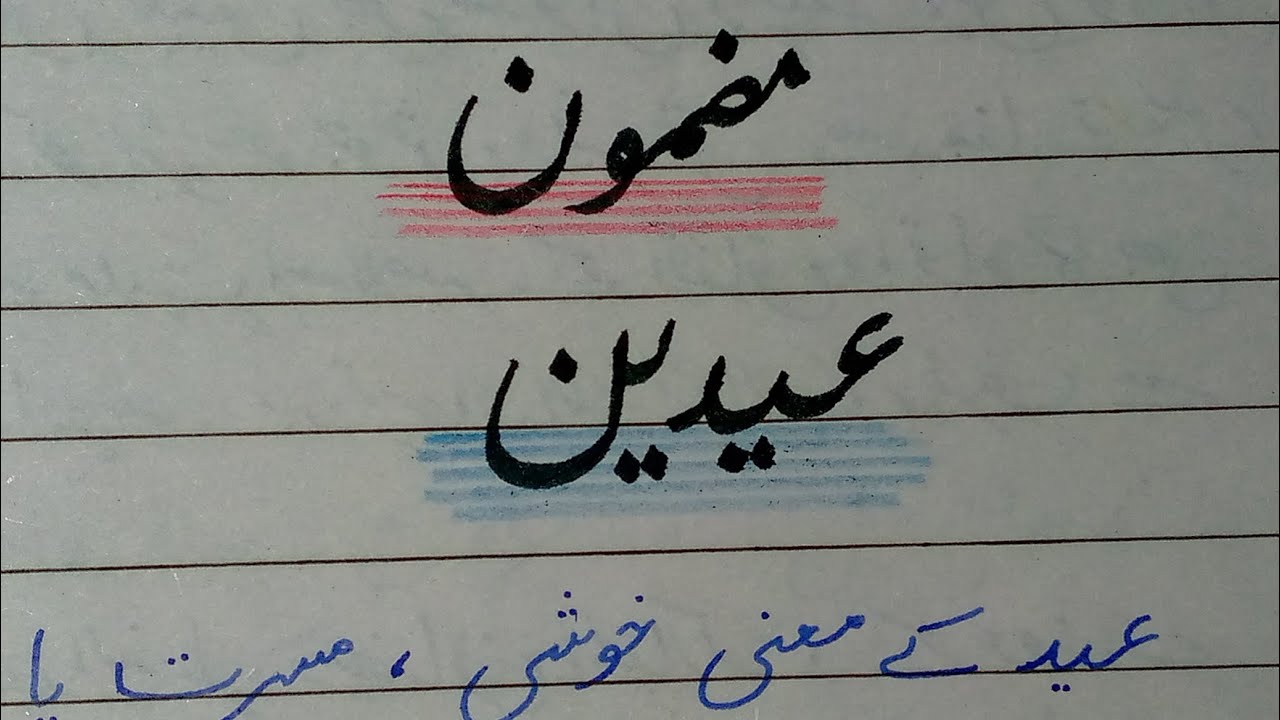 مضمون
عیدین
عید کے معنی خوشی ، مسرت یا